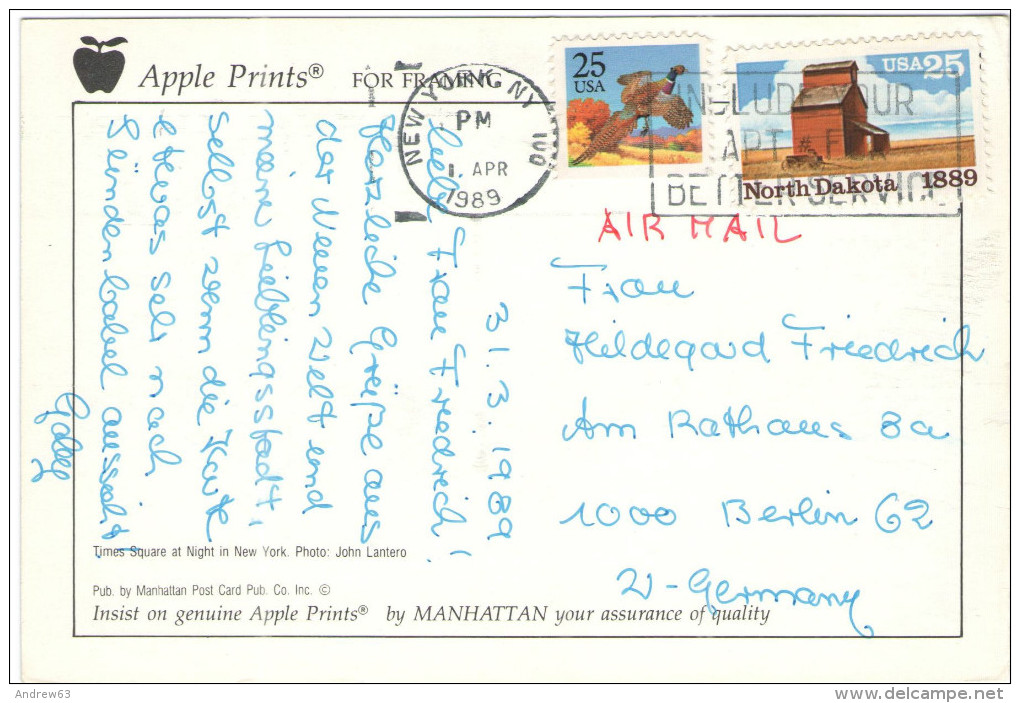 Apple Prints® FOR FRAMING
NEW YORK NY 100
PM
1 APR
1989
25
USA
USA 25
North Dakota 1889
INCLUDE YOUR
APT #
BETTER SERVICE
AIR MAIL
31.3.1989
Liebe Frau Friedrich!
Herzliche Grüße aus
der Neuen Welt und
meiner Lieblingsstadt,
selbst wenn die Karte
etwas sehr nach
Sündenbabel aussieht!
Gaby
Frau
Hildegard Friedrich
Am Rathaus 8a
1000 Berlin 62
W-Germany
Times Square at Night in New York. Photo: John Lantero
Pub. by Manhattan Post Card Pub. Co. Inc. ©
Insist on genuine Apple Prints® by MANHATTAN your assurance of quality
Andrew63
www.delcampe.net